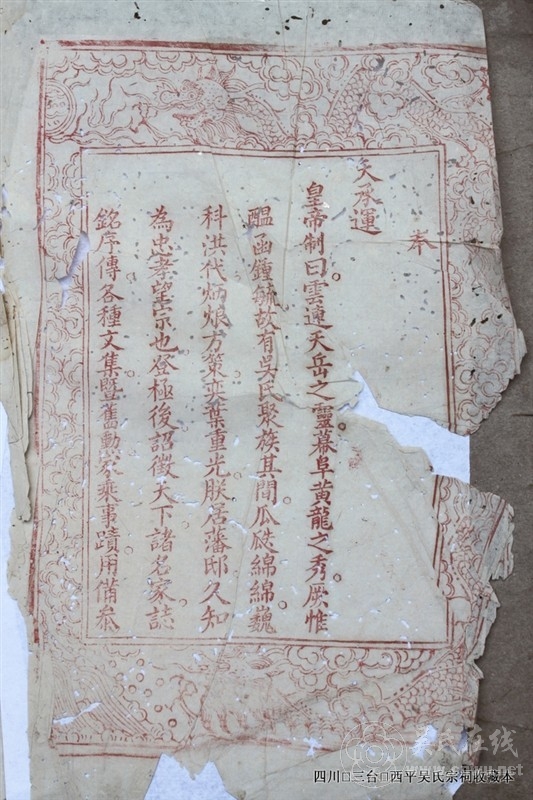 奉
天承運
皇帝制曰雲連天岳之靈幕阜黃龍之秀厥惟
醞函鐘毓故有吳氏聚族其間瓜瓞綿綿巍
科洪代炳烺方策奕葉重光朕居藩邸久知
為忠孝望宗也登極後詔徵天下諸名家誌
銘序傳各種文集暨舊勳家乘事蹟用備叅
吴氏在线
四川□三台□西平吴氏宗祠收藏本